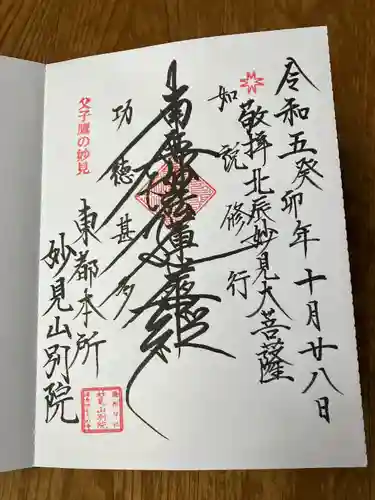 令和五癸卯年十月廿八日
敬拝北辰妙見大菩薩
如説修行
南無妙法蓮華経
功徳甚多
父子鷹の妙見
東都本所
妙見山別院
妙見山別院